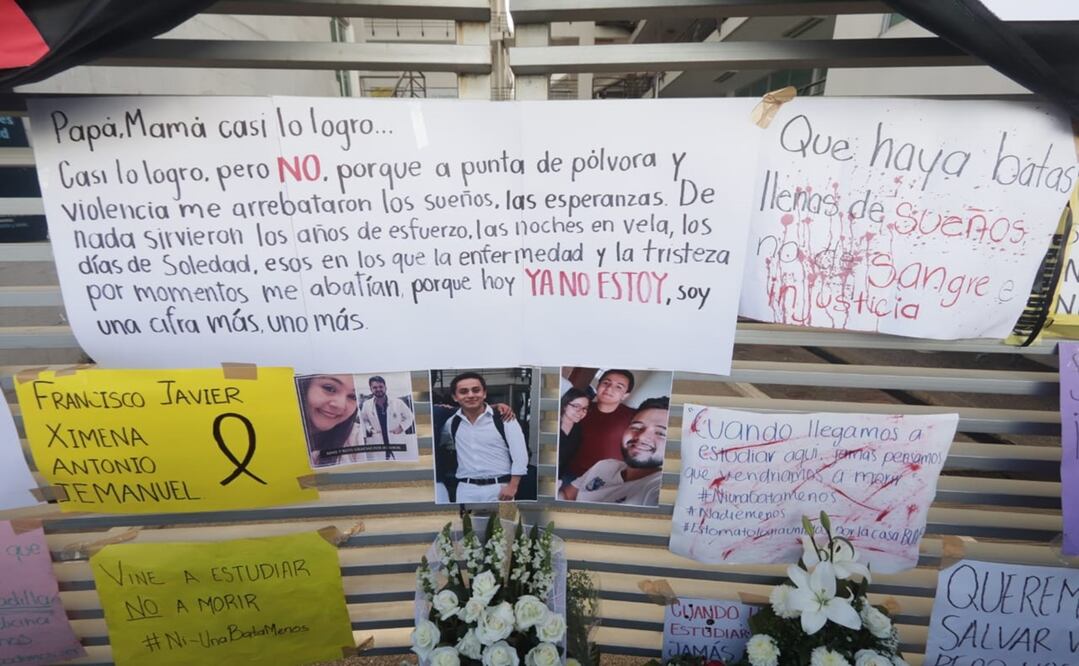 Papá, Mamá casi lo logro...
Casi lo logro, pero NO, porque a punta de pólvora y
violencia me arrebataron los sueños, las esperanzas. De
nada sirvieron los años de esfuerzo, las noches en vela, los
días de Soledad, esos en los que la enfermedad y la tristeza
por momentos me abatían, porque hoy YA NO ESTOY, soy
una cifra más, uno más.
Que haya batas
llenas de sueños
no de sangre e
injusticia
FRANCISCO JAVIER
XIMENA
ANTONIO
J.EMANUEL.
Cuando llegamos a
estudiar aquí, jamás pensamos
que vendríamos a morir
#NiUnaBataMenos
#Nadiemenos
por la casa
VINE A ESTUDIAR
NO A MORIR
#Ni-UnaBataMenos
que
CUANDO
ESTUDIAR
JAMÁS
QUEREM
SALVAR V